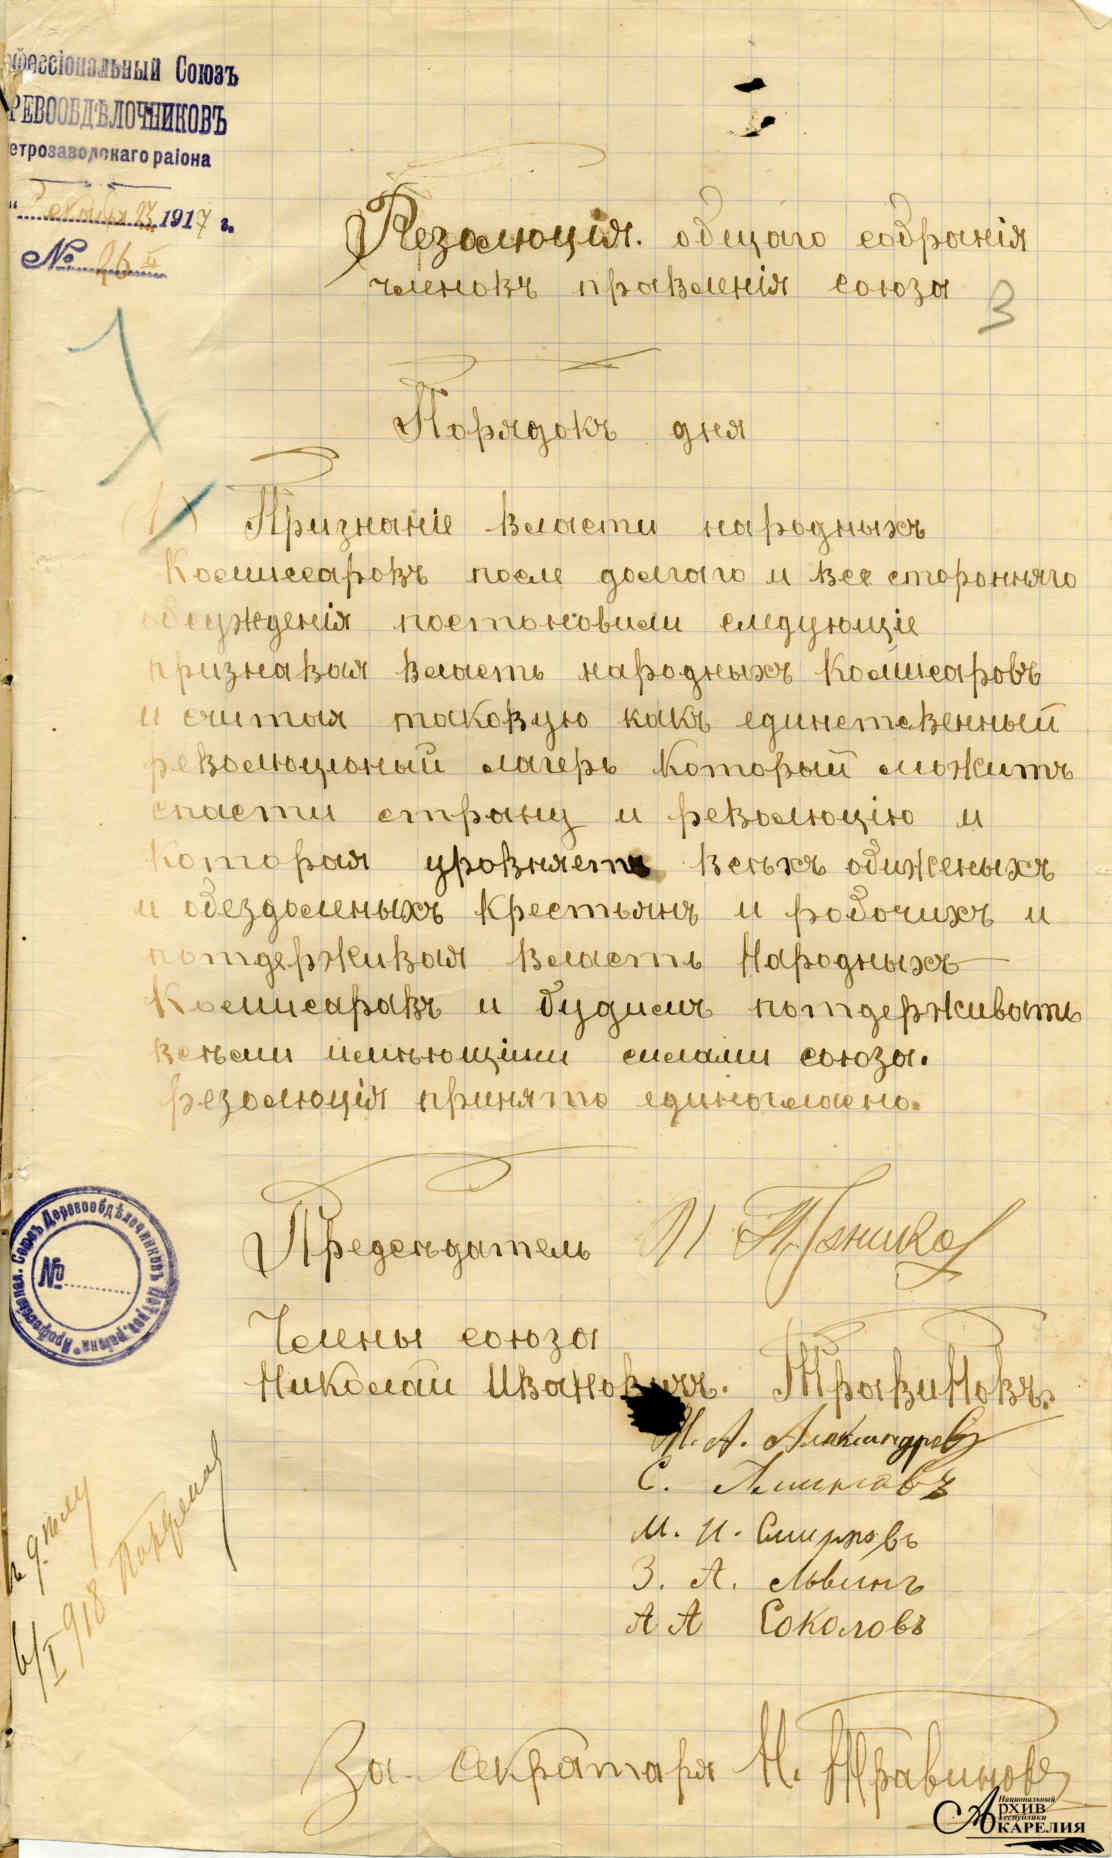 офессіональный Союзъ
РЕВООБДѢЛОЧНИКОВЪ
етрозаводскаго раіона
Декабря 23 1917 г.
№ 26
Резолюція. общаго собранія
членовъ правленія союза
3
Порядокъ дня
1) Признаніе власти народныхъ
Комиссаровъ после долгаго и все сторонняго
обсужденія постоновили следующіе
признавая власть народныхъ Комисаровъ
и считая таковую какъ единственный
революціоный лагерь который можитъ
спасти страну и революцію и
которая уровняетъ всехъ обиженыхъ
и обездоленыхъ Крестьянъ и робочихъ и
потдерживая власть Народныхъ
Комисаравъ и будимъ потдерживать
всеми имеющіми силами союза.
резолюція принято единогласно.
Председатель П
Члены союза
Николай Ивановичъ. Травиновъ.
А. Александровъ
С.
М. И. Смирновъ
З. А. Львинъ
А А Соколовъ
Професіонал. Союзъ Деревообдѣлочниковъ Петроз. раіона
№
к делу
6/I 918
За секратаря Н. Травиновъ
Национальный
Архив
Республики
Карелия